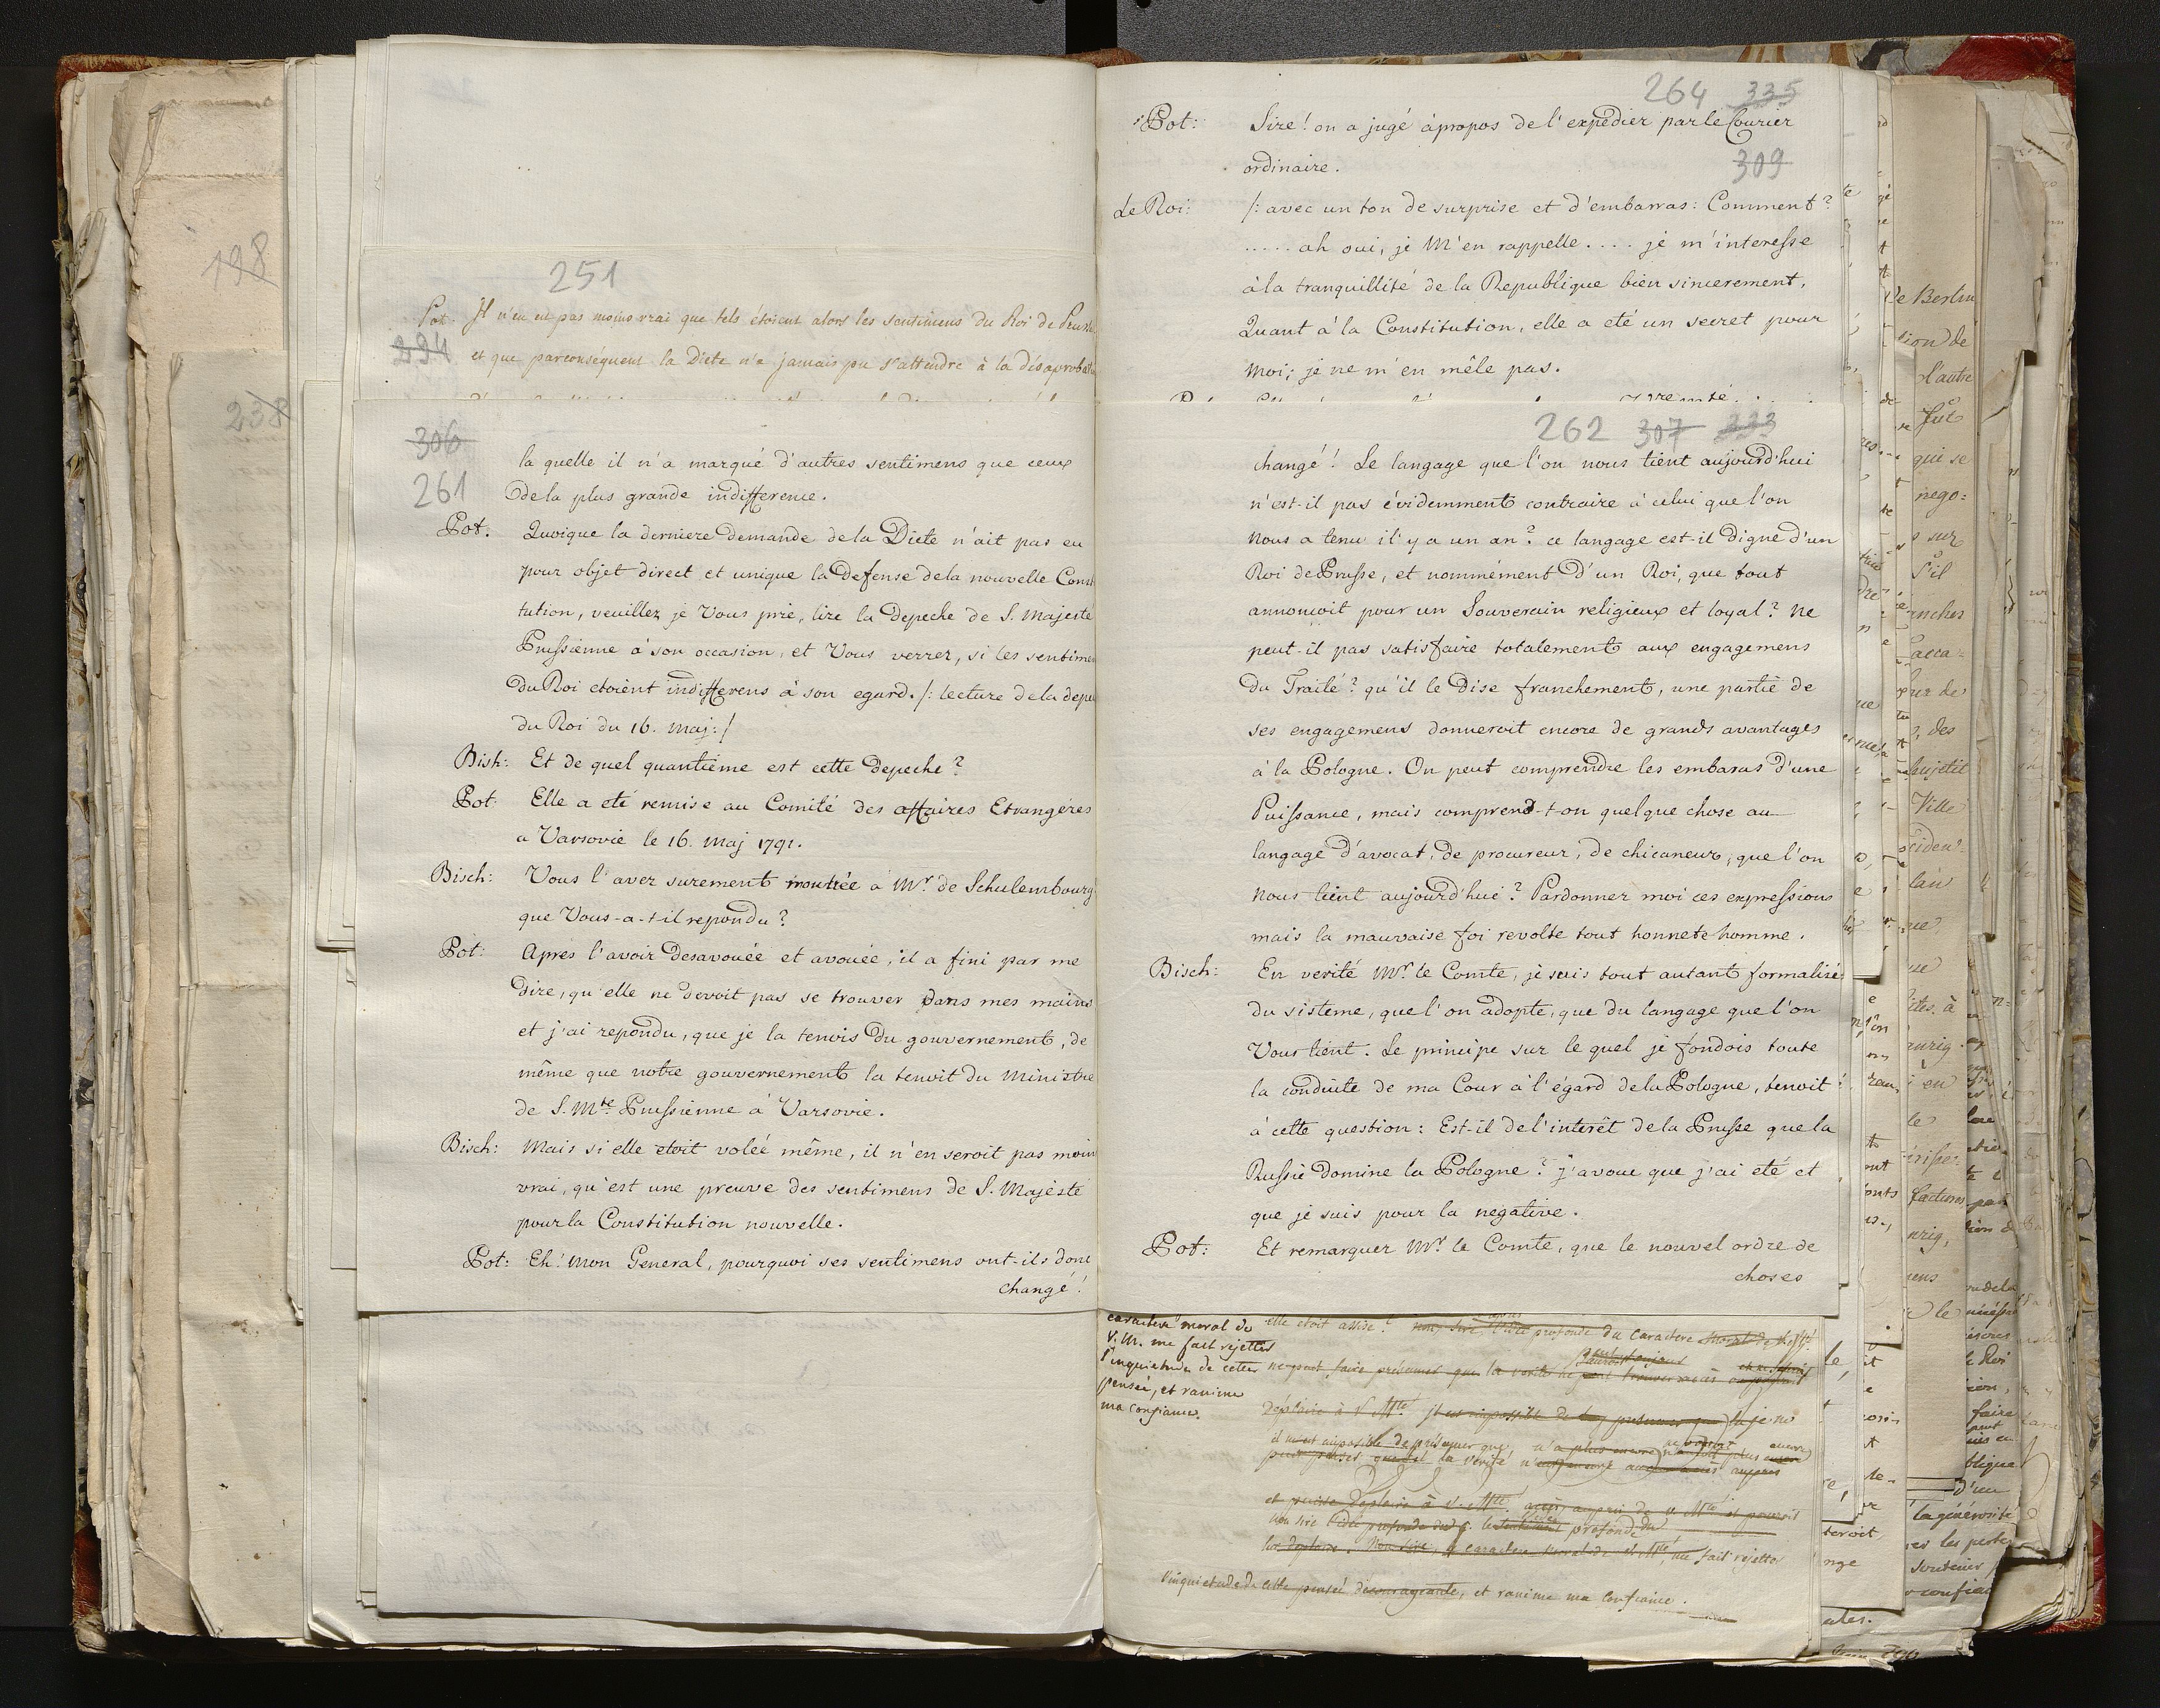 198
238
251
Pot. Il n'en est pas moins vrai que tels étoient alors les sentimens du Roi de
294
et que parconséquent la Diete n'a jamais pu s'attendre à la
306
261
la quelle il n'a marqué d'autres sentimens que ceux
de la plus grande indifference.
Pot. Quoique la derniere demande de la Diete n'ait pas eu
pour objet direct et unique la defense de la nouvelle Consti
tution, veuillez je Vous prie, lire la depeche de S. Majesté
Prussienne à son occasion, et Vous verrez, si les sentimen
du Roi etoient indifferens à son egard. /: lecture de la depe
du Roi du 16. maj :/
Bish: Et de quel quantième est cette depeche?
Pot: Elle a eté remise au Comité des affaires Etrangéres
a Varsovie le 16. Maj 1791.
Bisch: Vous l'avez surement montrée à Mr. de Schulembourg
que Vous-a-t-il repondu?
Pot: Après l'avoir desavouée et avouée, il a fini par me
dire, qu'elle ne devoit pas se trouver dans mes mains
et j'ai repondu, que je la tenois du gouvernement, de
même que notre gouvernement la tenoit du Ministre
de S. Mté Prussienne à Varsovie.
Bisch: Mais si elle etoit volée même, il n'en seroit pas moin
vrai, qu'est une preuve des sentimens de S. Majesté
pour la Constitution nouvelle.
Pot: Eh! mon General, pourquoi ses sentimens ont-ils donc
changé!
264 335
Pot: Sire! on a jugé àpropos de l'expédier par le Courier
ordinaire.
309
Le Roi: /: avec un ton de surprise et d'embarras: Comment?
..... ah oui, je M'en rappelle.... je m'interesse
à la tranquillité de la Republique bien sincerement,
Quant à la Constitution, elle a eté un secret pour
moi; je ne m'en mêle pas.
262 307 333
changé! Le langage que l'on nous tient aujourd'hui
n'est-il pas évidemment contraire à celui que l'on
nous a tenu il y a un an? ce langage est-il digne d'un
Roi de Prusse, et nommément d'un Roi, que tout
annonçoit pour un Souverain religieux et loyal? ne
peut-il pas satisfaire totalement aux engagemens
du Traité? qu'il le dise franchement, une partie de
ses engagemens donneroit encore de grands avantages
à la Pologne. On peut comprendre les embaras d'une
Puissance, mais comprend-t-on quelque chose au
langage d'avocat, de procureur, de chicaneur, que l'on
nous tient aujourd'hui? Pardonnez moi ces expressions
mais la mauvaise foi revolte tout honnete homme.
Bisch: En verité Mr. le Comte, je suis tout autant formalisé
du sisteme, que l'on adopte, que du langage que l'on
Vous tient. Le principe sur le quel je fondois toute
la conduite de ma Cour à l'égard de la Pologne, tenoit
à cette question: Est-il de l'interêt de la Prusse que la
Russie domine la Pologne? j'avoue que j'ai eté et
que je suis pour la negative.
Pot: Et remarquez Mr. le Comte, que le nouvel ordre de
choses
caractere moral de
V. M. me fait rejetter
l'inquietude de cette
pensée, et ranime
ma confiance.
elle étoit assise? non, Sire, profonde du caractere
ne peut faire présumer que la verité
déplaire à V. Mté.
il m'est impossible de présumer que
la verité
profonde du
caractere me fait rejetter
l'inquietude de cette pensée décourageante, et ranime ma confiance.
de Berlin
tion de
l'autre
fut
qui se
nego:
sur
S'il
des
Ville
faire
la générosité